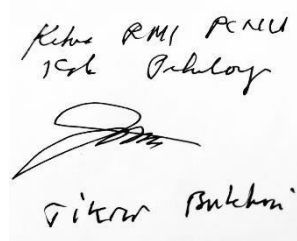 Ketua RMI PCNU
Kab Pekalongan
Tikror Bukhori